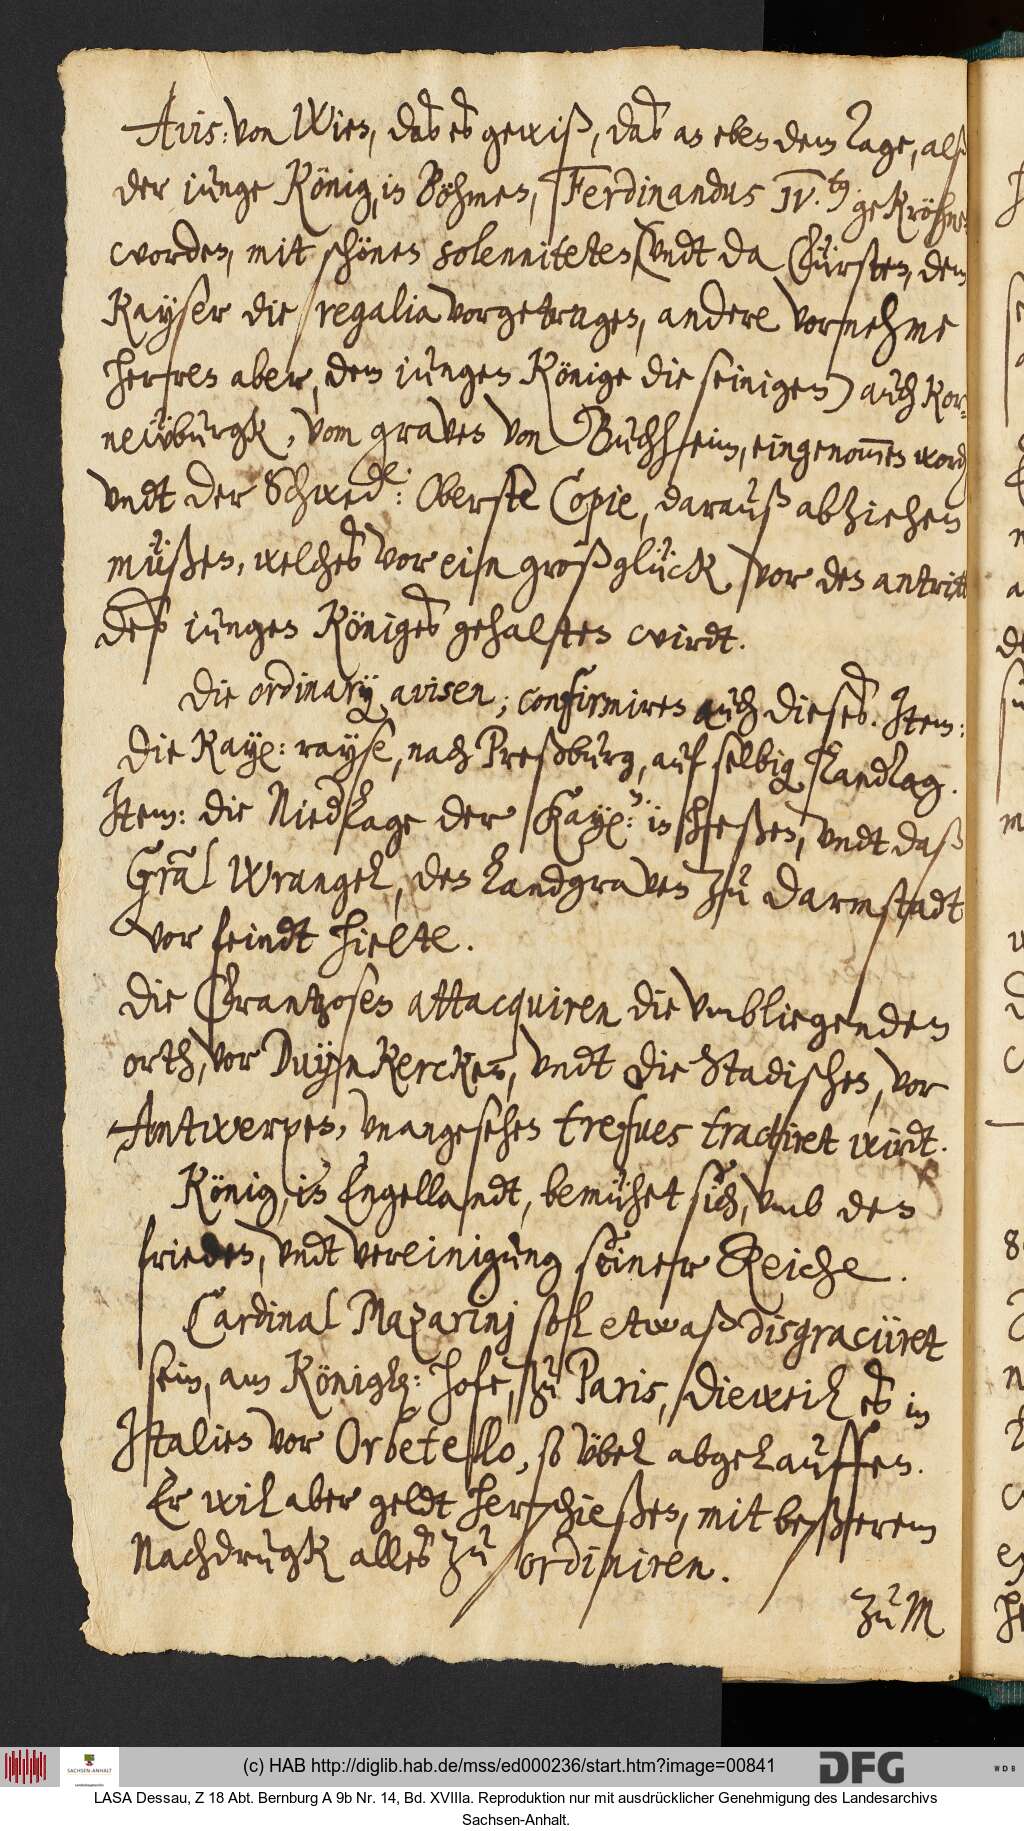 Avis: von Wien, daß es gewiß, daß an eben dem Tage, alß
der iunge König, in Böhmen, Ferdinandus IV.tus gekröhnet
worden, mit schönen solenniteten, (undt da Fürsten, dem
Kayser die regalia vorgetragen, andere vornehme
herren aber, dem iungen Könige die seinigen) auch Kor-
neüburgk, vom graven von Buchheim, eingenommen word
vndt der Schwed: Oberste Copie, darauß abziehen
müßen, welches vor ein groß glück, vor den antritt
deß iungen Königes gehalten wirdt.
Die ordinarij avisen, confirmiren auch dieses. Item:
die Kay: rayse, nach Preßburg, auf selbig Landtag.
Item: die Niederlage der Kay: in Heßen, vndt daß
Gral Wrangel, den Landgraven zu Darmstadt
vor feindt hielte.
Die Frantzosen attacquiren die vmbliegenden
orth, vor Duynkercken, vndt die Stadischen, vor
Antwerpen, vnangesehen trefues tractiret wirdt.
König, in Engellandt, bemühet sich, vmb den
frieden, vndt vereinigung seiner Reiche.
Cardinal Mazzarinj soll etwaß disgraciiret
sein, am Königl: hofe, zu Paris, dieweil es in
Jtalien vor Orbetello, so übel abgelauffen.
Er wil aber geldt herschießen, mit beßerem
Nachdrugk alles zu ordiniren.
Zu M
(c) HAB http://diglib.hab.de/mss/ed000236/start.htm?image=00841
SACHSEN-ANHALT
DFG
WDB
LASA Dessau, Z 18 Abt. Bernburg A 9b Nr. 14, Bd. XVIIIa. Reproduktion nur mit ausdrücklicher Genehmigung des Landesarchivs
Sachsen-Anhalt.